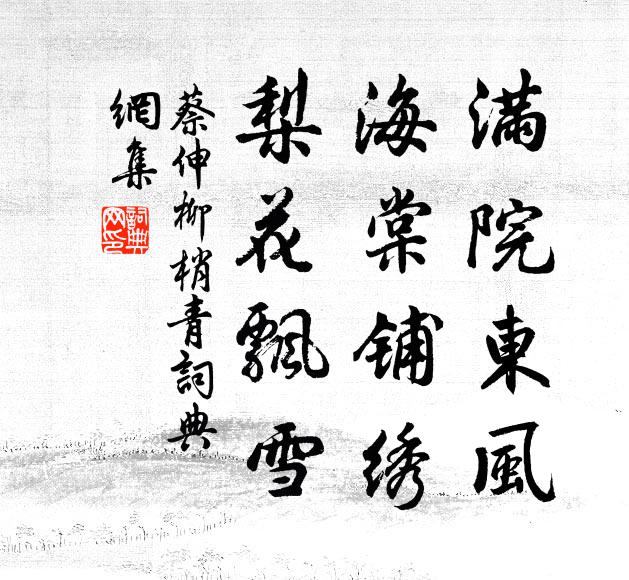 满院東風
海棠铺绣
梨花飄雪
蔡伸柳梢青詞典
網集
詞典
网印